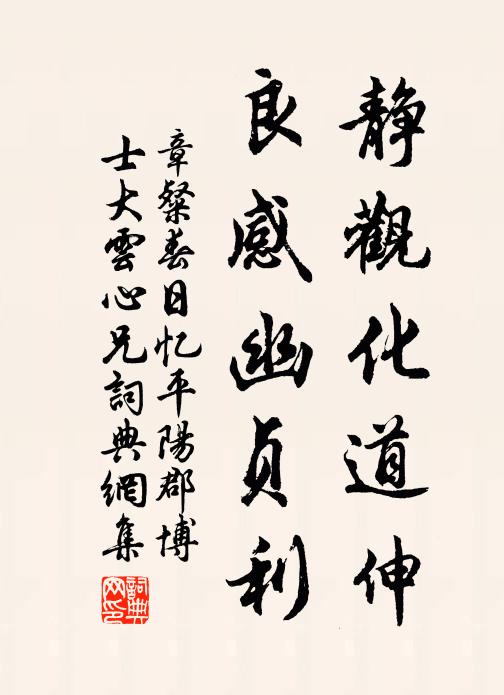 靜觀化道伸
良感幽貞利
章粲春日忆平陽郡博
士大雲心兄詞典網集
詞典
网印